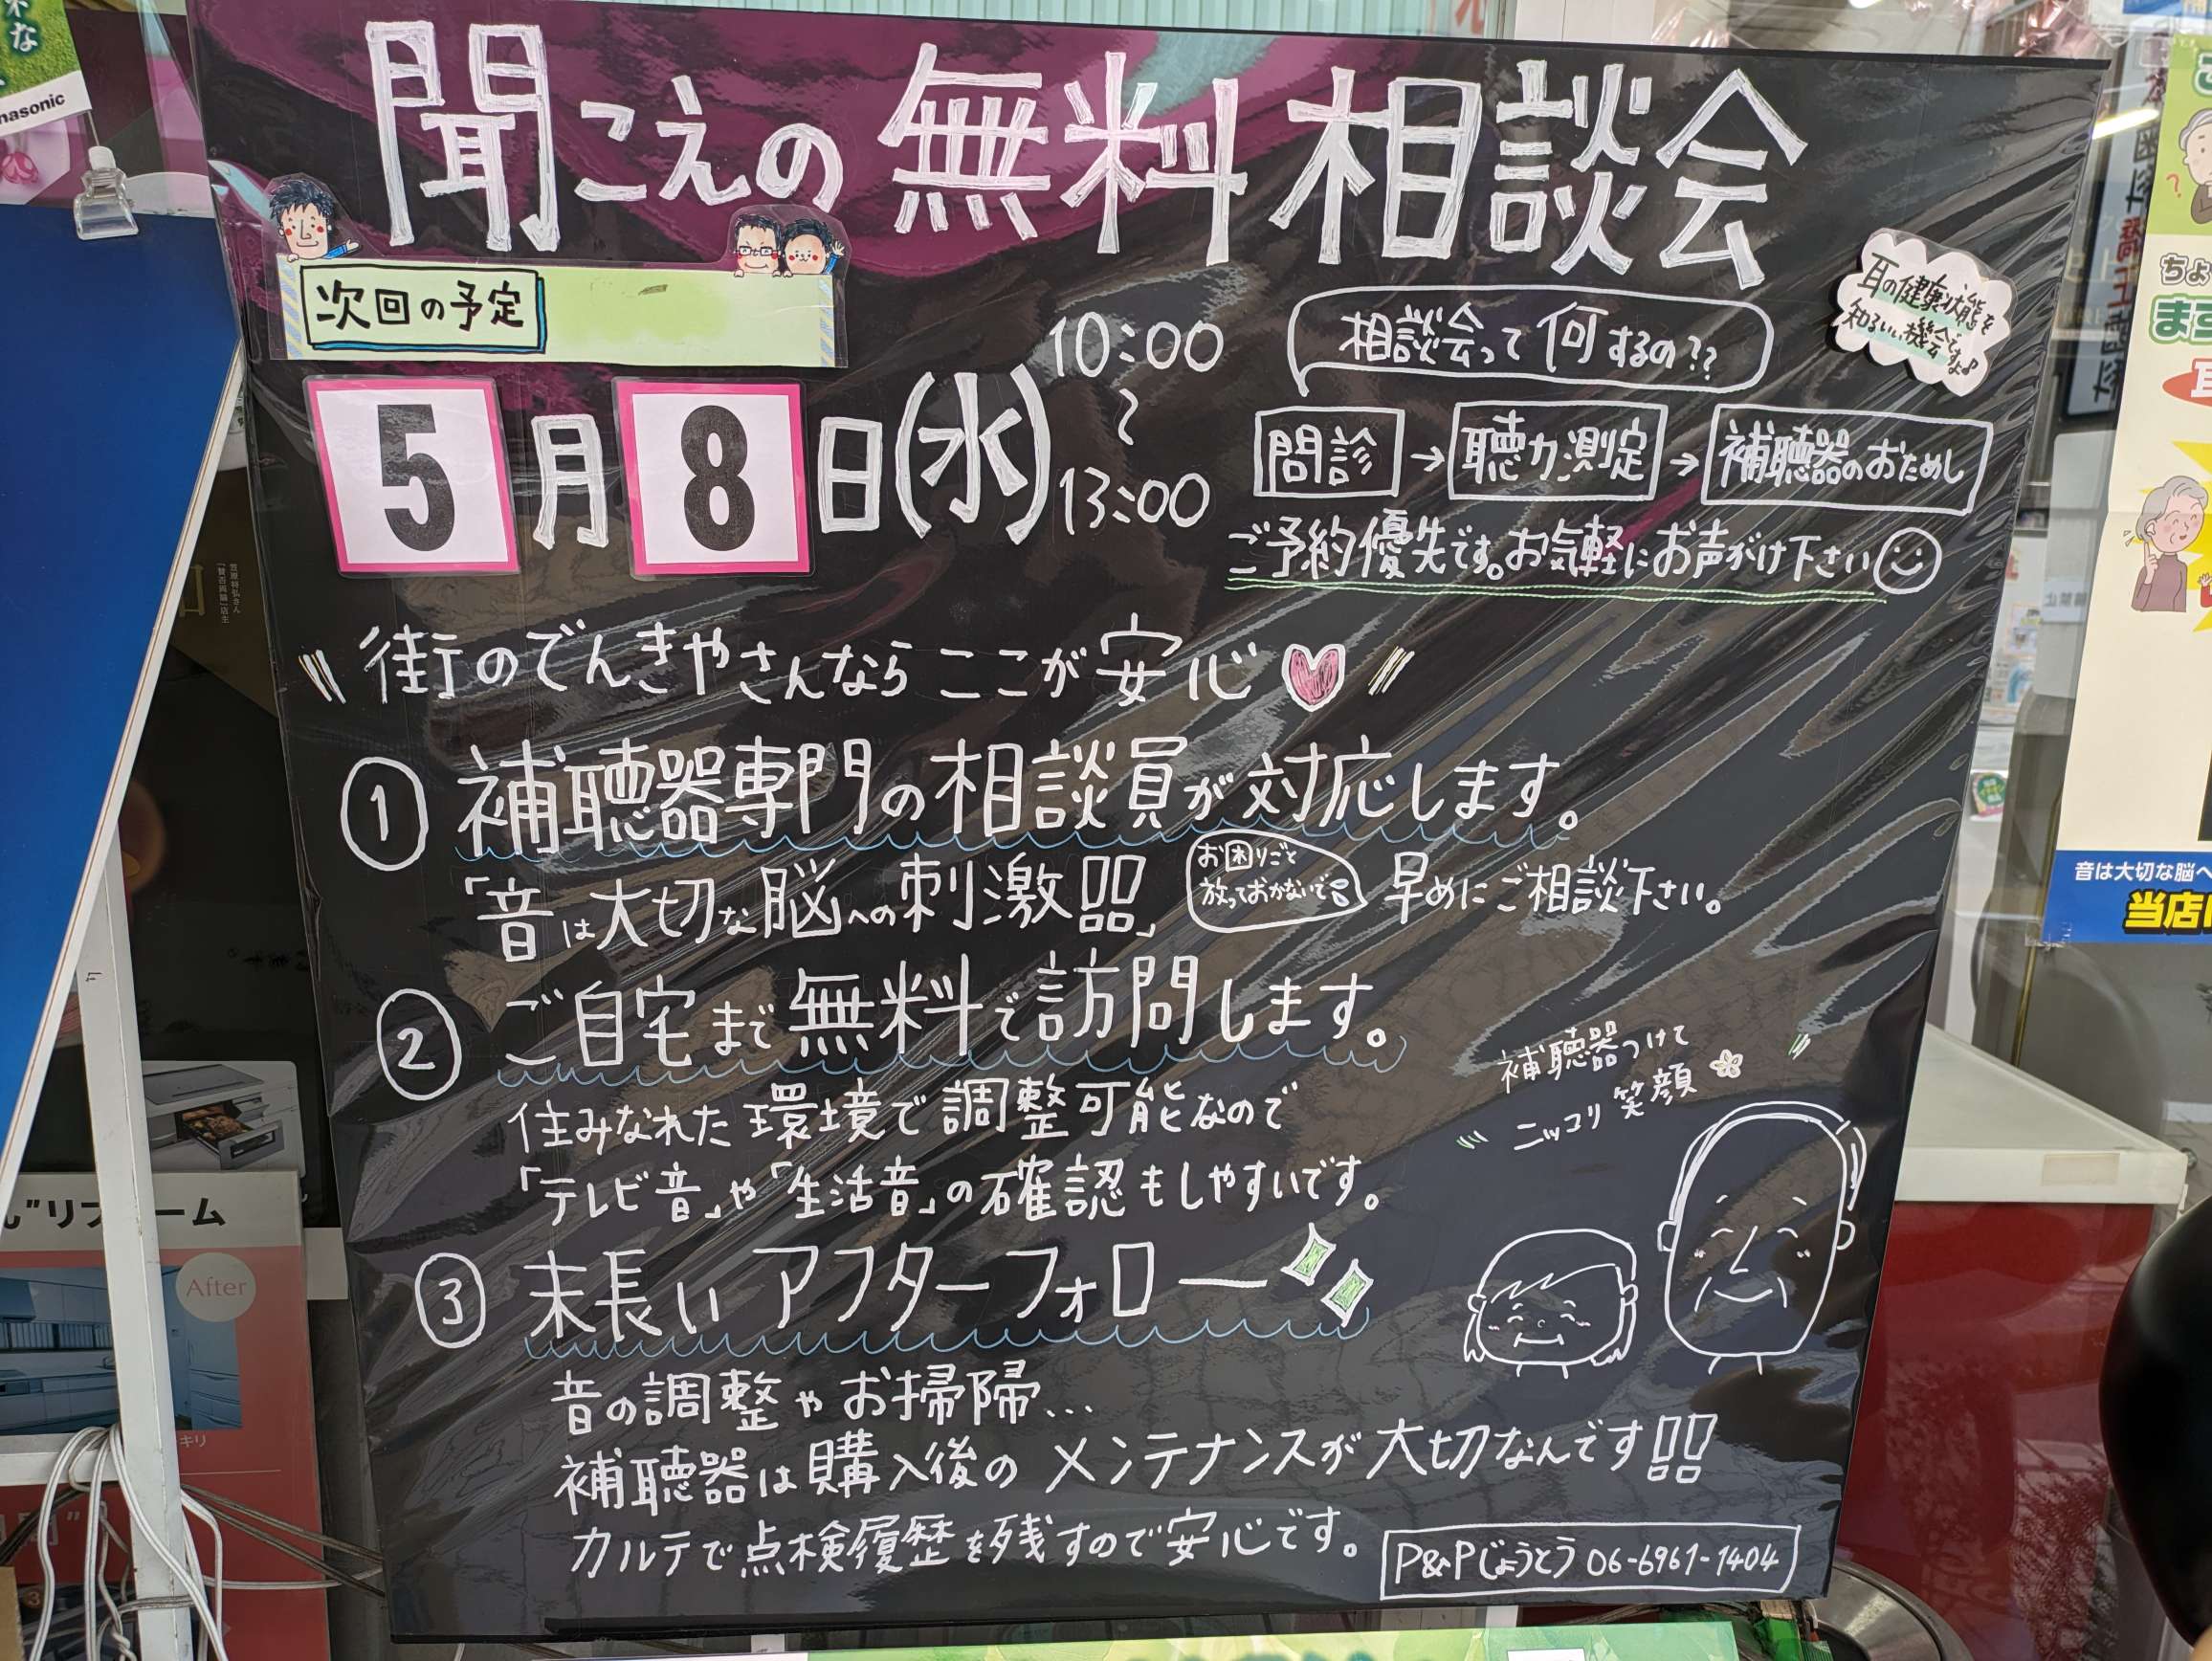 聞こえの無料相談会
次回の予定
5月8日(水)
10:00
〜
13:00
相談会って何するの??
耳の健康状態を
知るいい機会ですよ♪
問診→聴力測定→補聴器のおためし
ご予約優先です。お気軽にお声がけ下さい
街のでんきやさんなら ここが安心
① 補聴器専門の相談員が対応します。
「音は大切な脳への刺激器」
お困りごと
放っておかないで
早めにご相談下さい。
② ご自宅まで無料で訪問します。
住みなれた環境で調整可能なので
「テレビ音」や「生活音」の確認もしやすいです。
補聴器つけて
ニッコリ笑顔
③ 末長いアフターフォロー
音の調整やお掃除...
補聴器は購入後のメンテナンスが大切なんです!!
カルテで点検履歴を残すので安心です。
P&Pじょうとう 06-6961-1404
nasonic
リフォーム
After
音は大切な脳へ
当店